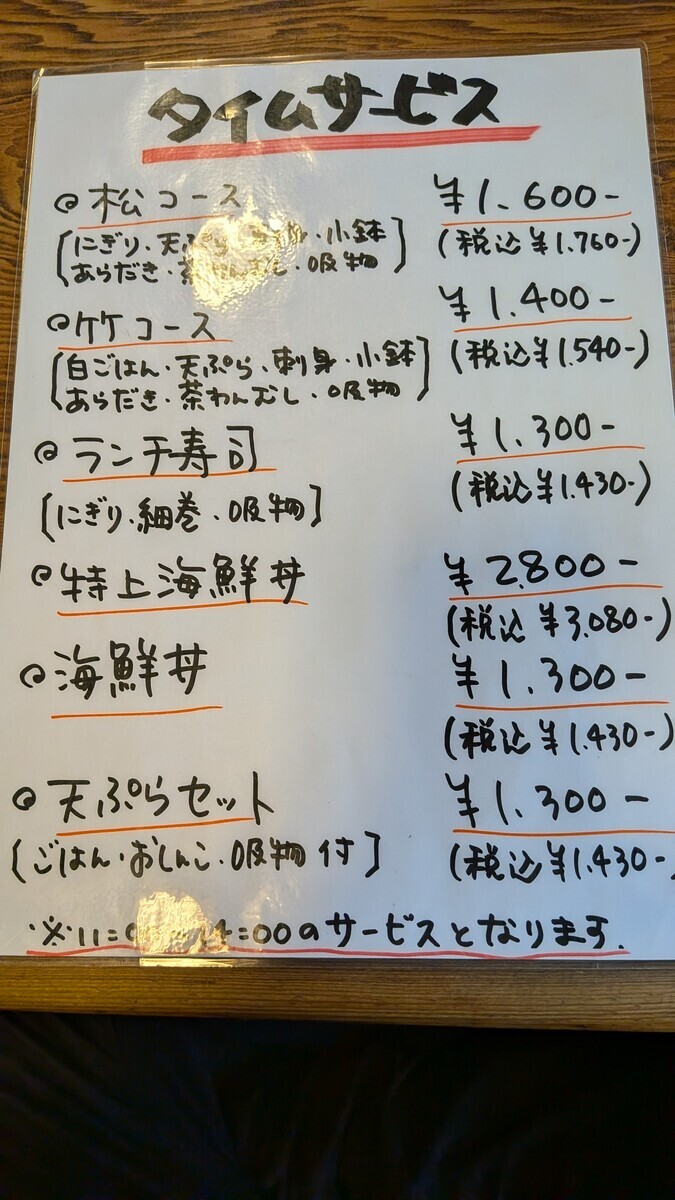 タイムサービス
松コース ¥1.600-
[にぎり・天ぷら・刺身・小鉢 (税込¥1.760-)
あらだき・茶わんむし・吸物]
竹コース ¥1.400-
[白ごはん・天ぷら・刺身・小鉢 (税込¥1.540-)
あらだき・茶わんむし・吸物]
ランチ寿司 ¥1.300-
[にぎり・細巻・吸物] (税込¥1.430-)
特上海鮮丼 ¥2.800-
(税込¥3.080-)
海鮮丼 ¥1.300-
(税込¥1.430-)
天ぷらセット ¥1.300-
(ごはん・おしんこ・吸物付] (税込¥1.430-
※11=00の サービスとなります.